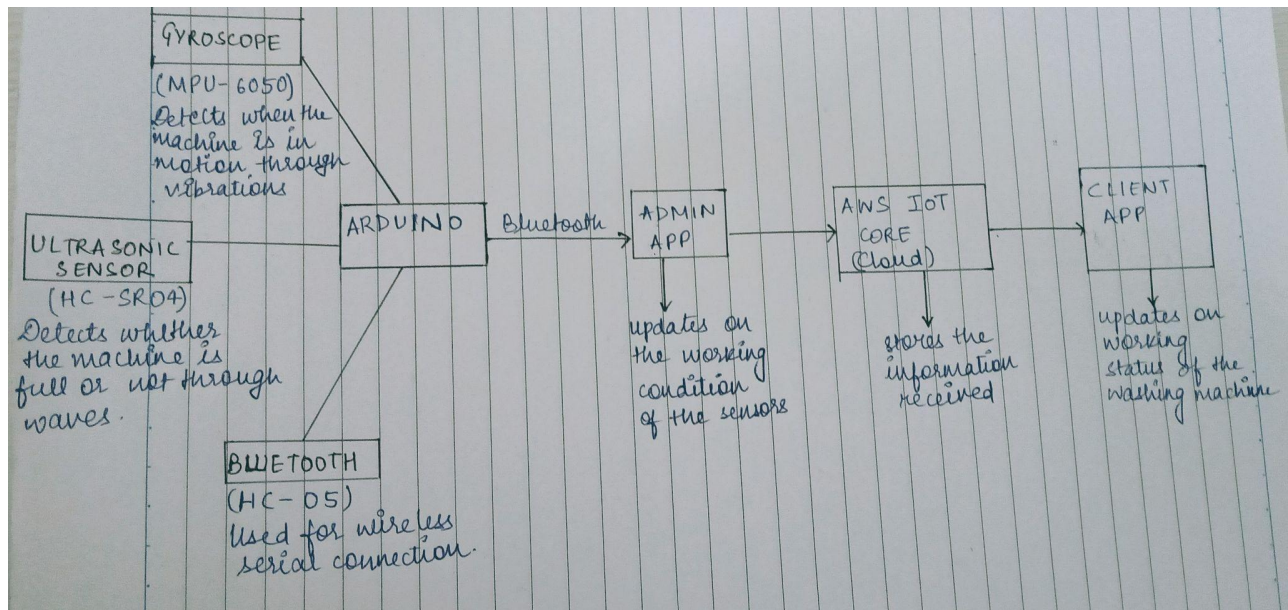 GYROSCOPE
(MPU-6050)
Detects when the
machine is in
motion through
vibrations
ULTRASONIC
SENSOR
(HC-SR04)
Detects whether
the machine is
full or not through
waves.
ARDUINO
BLUETOOTH
(HC-05)
Used for wireless
serial connection.
Bluetooth
ADMIN
APP
updates on
the working
condition
of the sensors
AWS IOT
CORE
(Cloud)
stores the
information
received
CLIENT
APP
updates on
working
status of the
washing machine